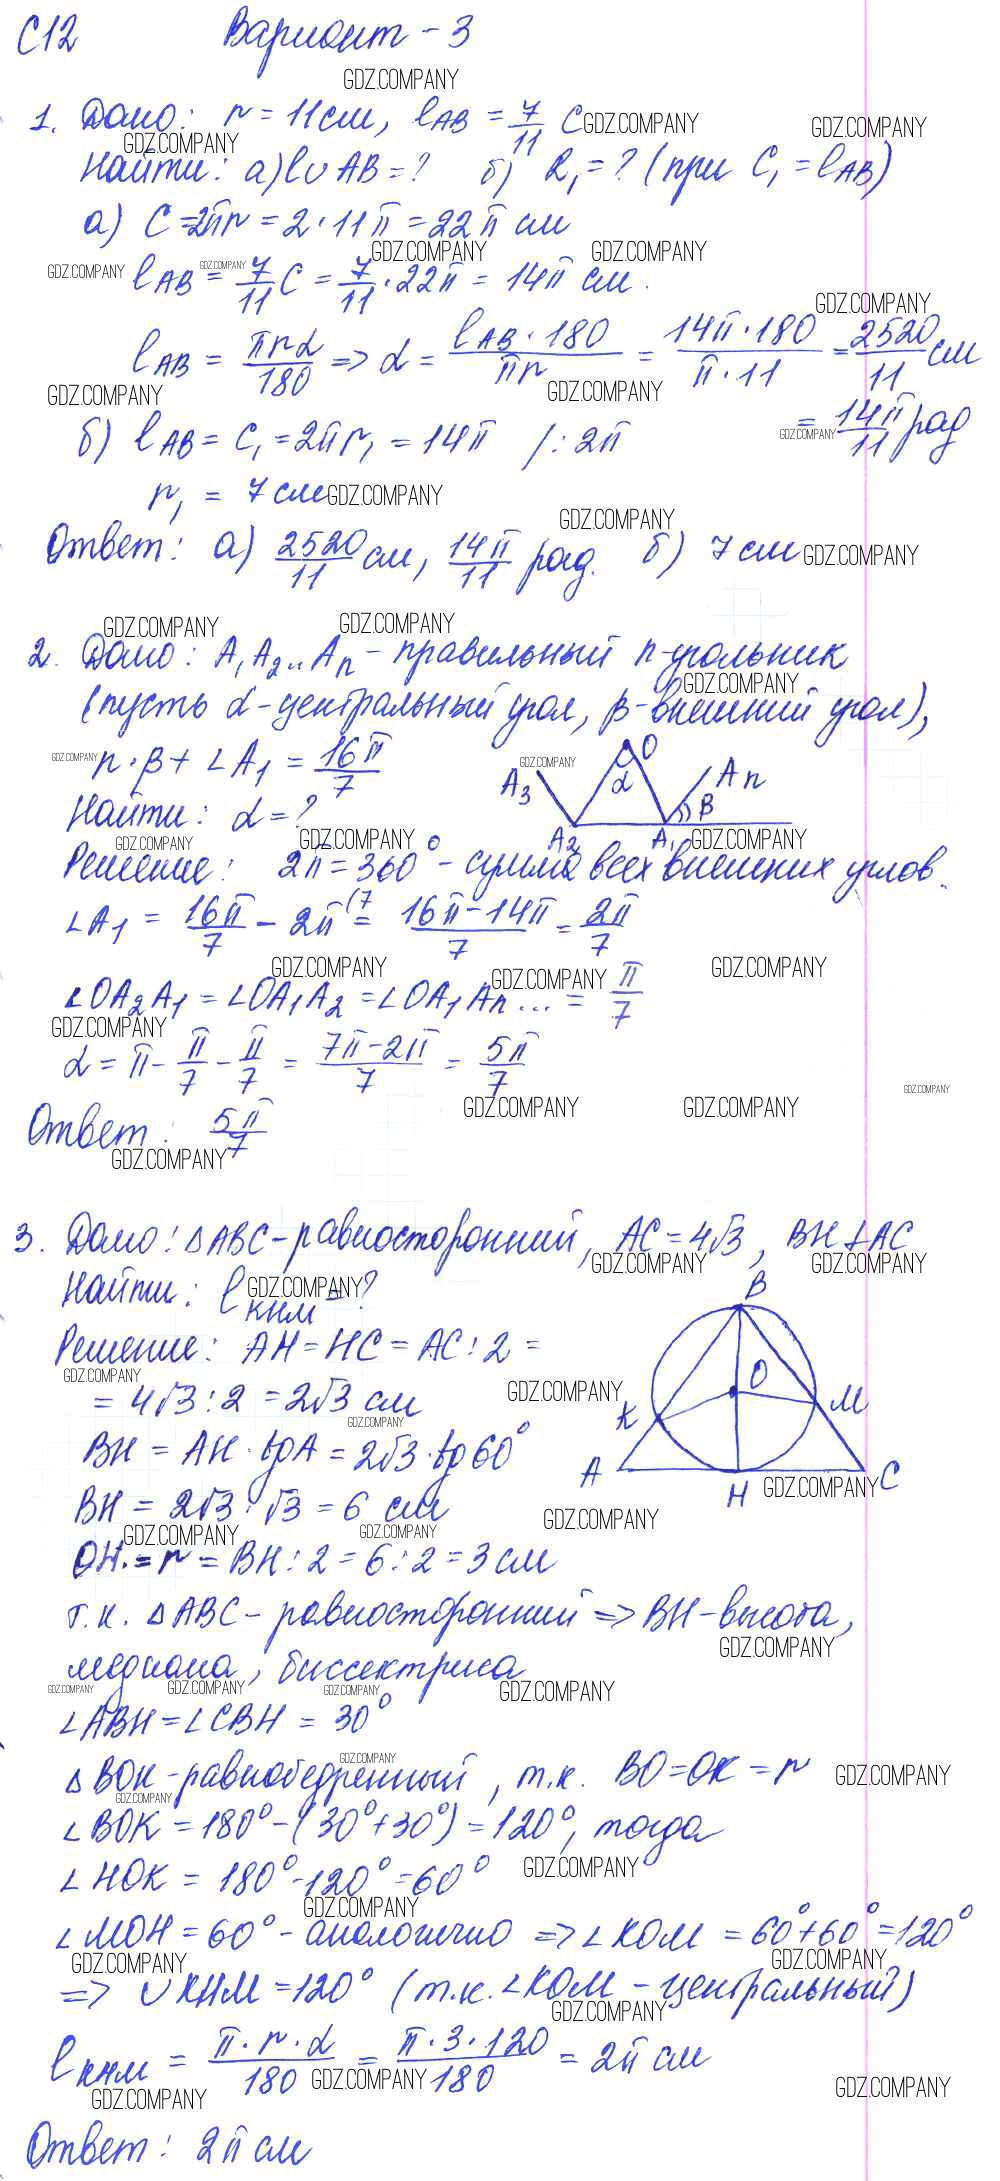 С12 Вариант - 3
GDZ.COMPANY
1. Дано: r = 11 см, lAB = 7/11 C GDZ.COMPANY GDZ.COMPANY
GDZ.COMPANY
Найти: а) l∪AB = ? б) R₁ = ? (при C₁ = lAB)
а) C = 2πr = 2·11π = 22π см
GDZ.COMPANY GDZ.COMPANY
GDZ.COMPANY GDZ.COMPANY
lAB = 7/11 C = 7/11 · 22π = 14π см.
GDZ.COMPANY
lAB = πrα/180 => α = lAB·180/πr = 14π·180/π·11 = 2520/11 см
GDZ.COMPANY GDZ.COMPANY
= 14π/11 рад
GDZ.COMPANY
б) lAB = C₁ = 2πr₁ = 14π /: 2π
r₁ = 7 см GDZ.COMPANY
GDZ.COMPANY
Ответ: а) 2520/11 см, 14π/11 рад. б) 7 см GDZ.COMPANY
GDZ.COMPANY GDZ.COMPANY
2. Дано: A₁A₂...Aₙ - правильный n-угольник
GDZ.COMPANY
(пусть α - центральный угол, β - внешний угол),
GDZ.COMPANY n·β + ∠A₁ = 16π/7
GDZ.COMPANY
O
A₃ α Aₙ
β
A₂ A₁
Найти: α = ?
GDZ.COMPANY GDZ.COMPANY GDZ.COMPANY
Решение: 2π = 360° - сумма всех внешних углов.
∠A₁ = 16π/7 - 2π (7 = 16π-14π/7 = 2π/7
GDZ.COMPANY GDZ.COMPANY GDZ.COMPANY
∠OA₂A₁ = ∠OA₁A₂ = ∠OA₁Aₙ... = π/7
GDZ.COMPANY
α = π - π/7 - π/7 = 7π-2π/7 = 5π/7
GDZ.COMPANY GDZ.COMPANY GDZ.COMPANY
Ответ: 5π/7
GDZ.COMPANY
3. Дано: ΔABC - равносторонний, AC = 4√3, BH ⊥ AC
GDZ.COMPANY GDZ.COMPANY
Найти: lKHM = ?
GDZ.COMPANY
B
O
K M
A H C
Решение: AH = HC = AC : 2 =
GDZ.COMPANY GDZ.COMPANY
= 4√3 : 2 = 2√3 см
GDZ.COMPANY
BH = AH · tgA = 2√3 · tg60°
GDZ.COMPANY
BH = 2√3 · √3 = 6 см
GDZ.COMPANY GDZ.COMPANY GDZ.COMPANY
OH = r = BH : 2 = 6 : 2 = 3 см
т.к. ΔABC - равносторонний => BH - высота,
GDZ.COMPANY
медиана, биссектриса
GDZ.COMPANY GDZ.COMPANY GDZ.COMPANY GDZ.COMPANY
∠ABH = ∠CBH = 30°
GDZ.COMPANY
ΔBOK - равнобедренный, т.к. BO = OK = r GDZ.COMPANY
GDZ.COMPANY
∠BOK = 180° - (30° + 30°) = 120°, тогда
∠HOK = 180° - 120° = 60° GDZ.COMPANY
GDZ.COMPANY
∠MOH = 60° - аналогично => ∠KOM = 60° + 60° = 120°
GDZ.COMPANY GDZ.COMPANY
=> ∪KHM = 120° (т.к. ∠KOM - центральный)
GDZ.COMPANY
lKHM = π·r·α/180 = π·3·120/180 = 2π см
GDZ.COMPANY GDZ.COMPANY GDZ.COMPANY
Ответ: 2π см